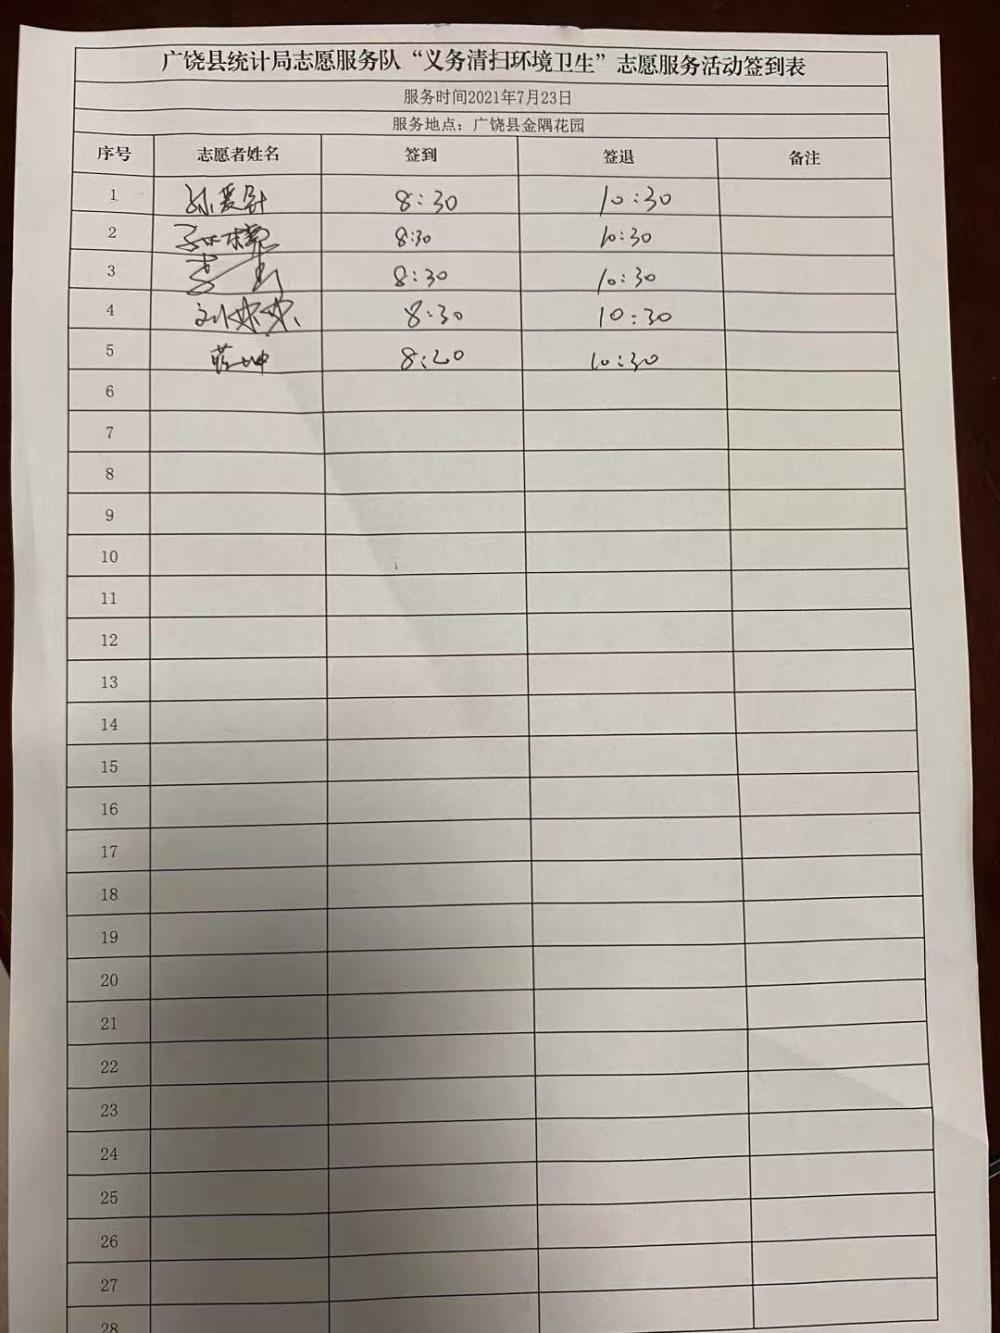 广饶县统计局志愿服务队“义务清扫环境卫生”志愿服务活动签到表
服务时间2021年7月23日
服务地点：广饶县金隅花园
序号 志愿者姓名 签到 签退 备注
1 孙爱军 8:30 10:30
2 8:30 10:30
3 8:30 10:30
4 刘妹妹 8:30 10:30
5 蒋坤 8:20 10:30
6
7
8
9
10
11
12
13
14
15
16
17
18
19
20
21
22
23
24
25
26
27
28